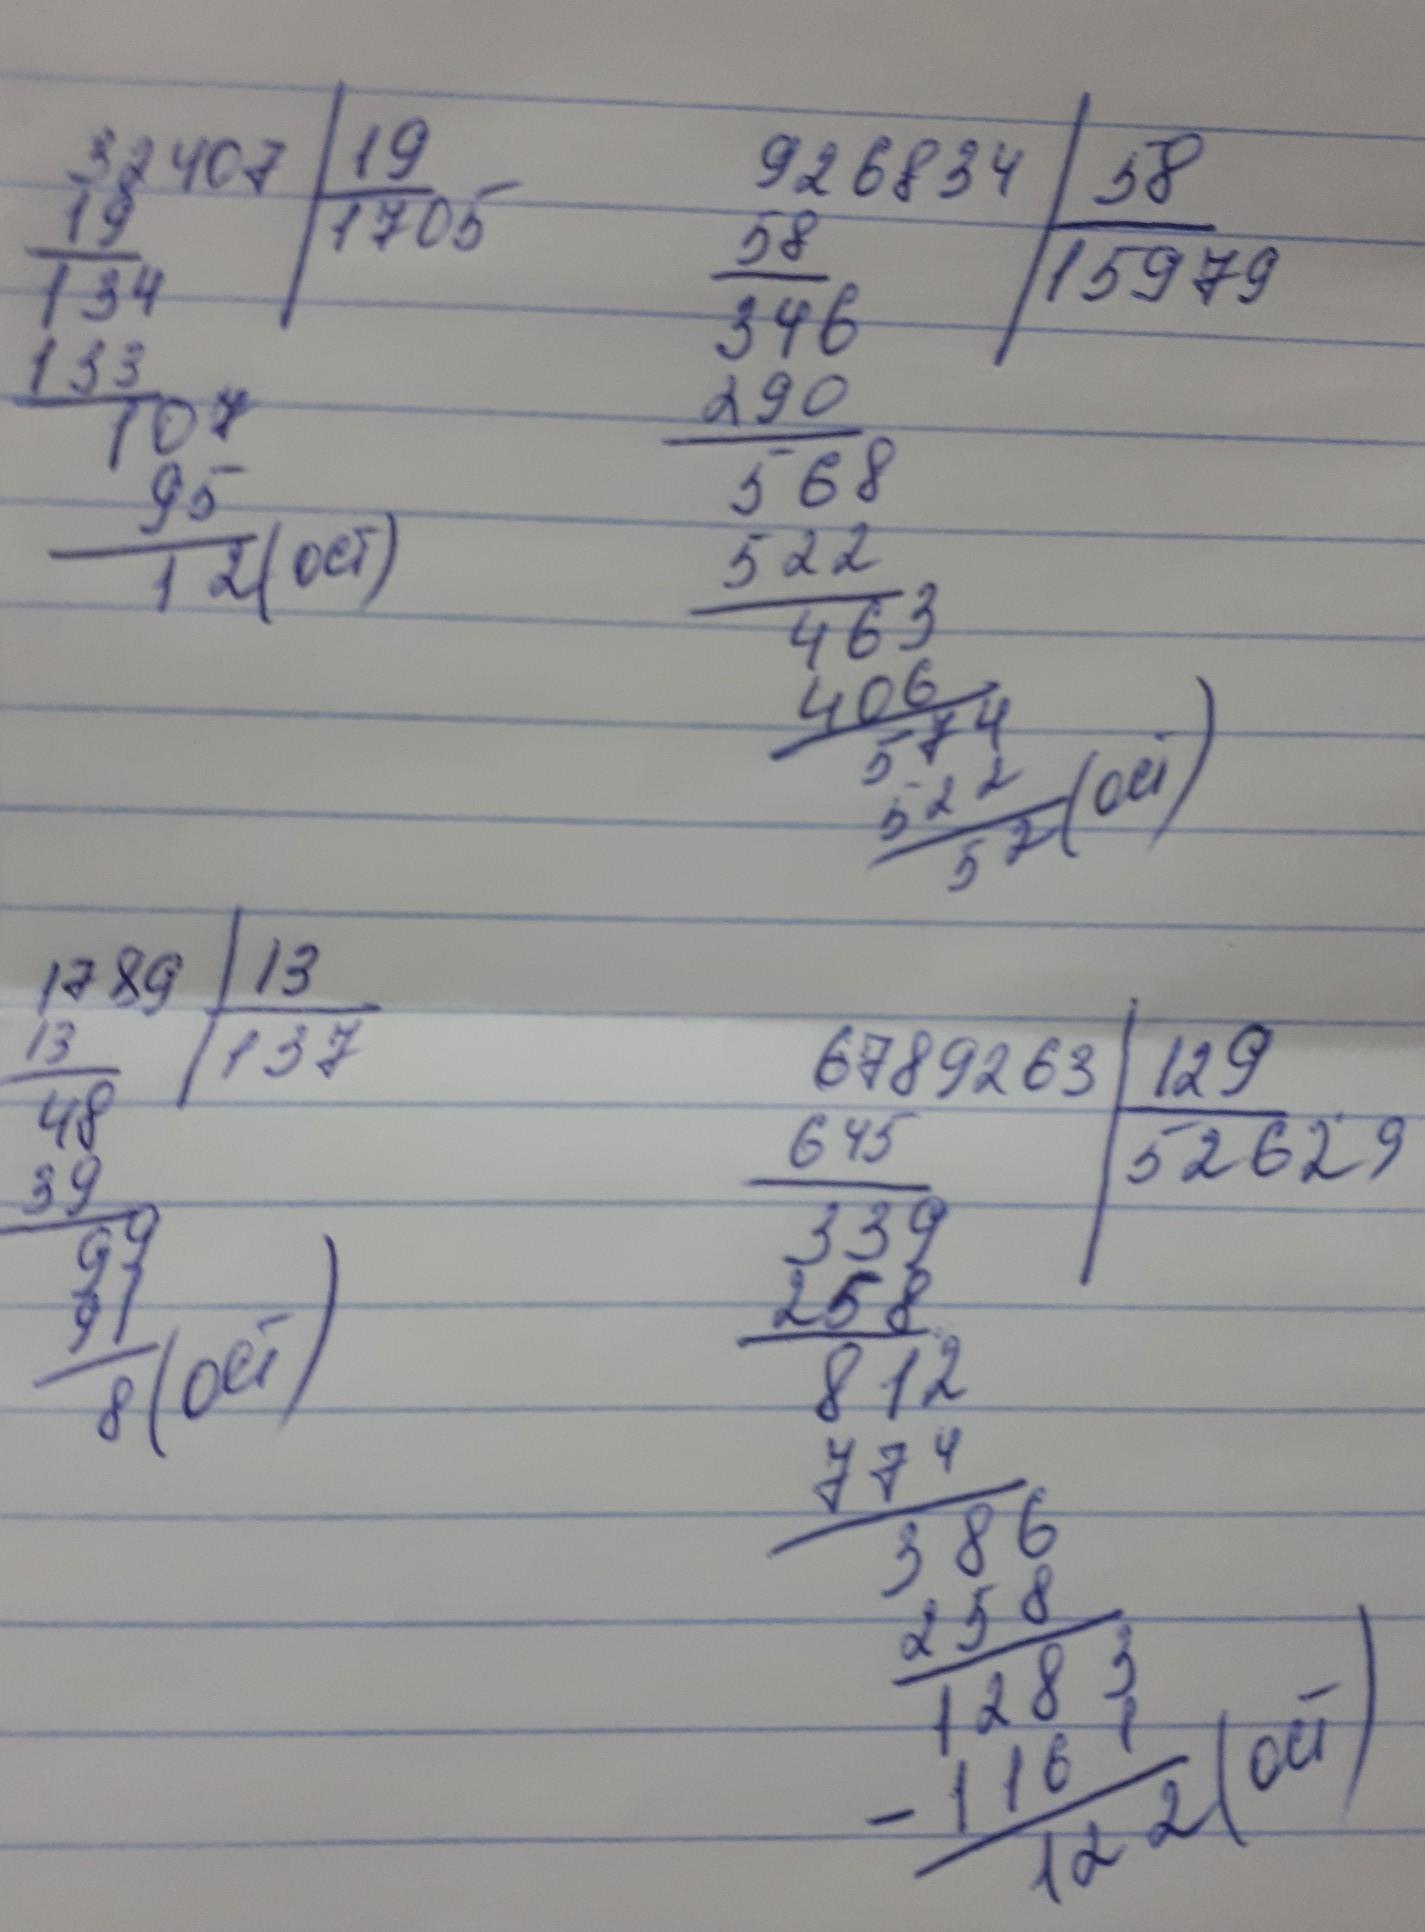 32407 19
19 1705
134
133
107
95
12 (ост)
926834 58
58 15979
346
290
568
522
463
406
574
522
52 (ост)
1789 13
13 137
48
39
99
91
8 (ост)
6789263 129
645 52629
339
258
812
774
386
258
1283
-1161
122 (ост)